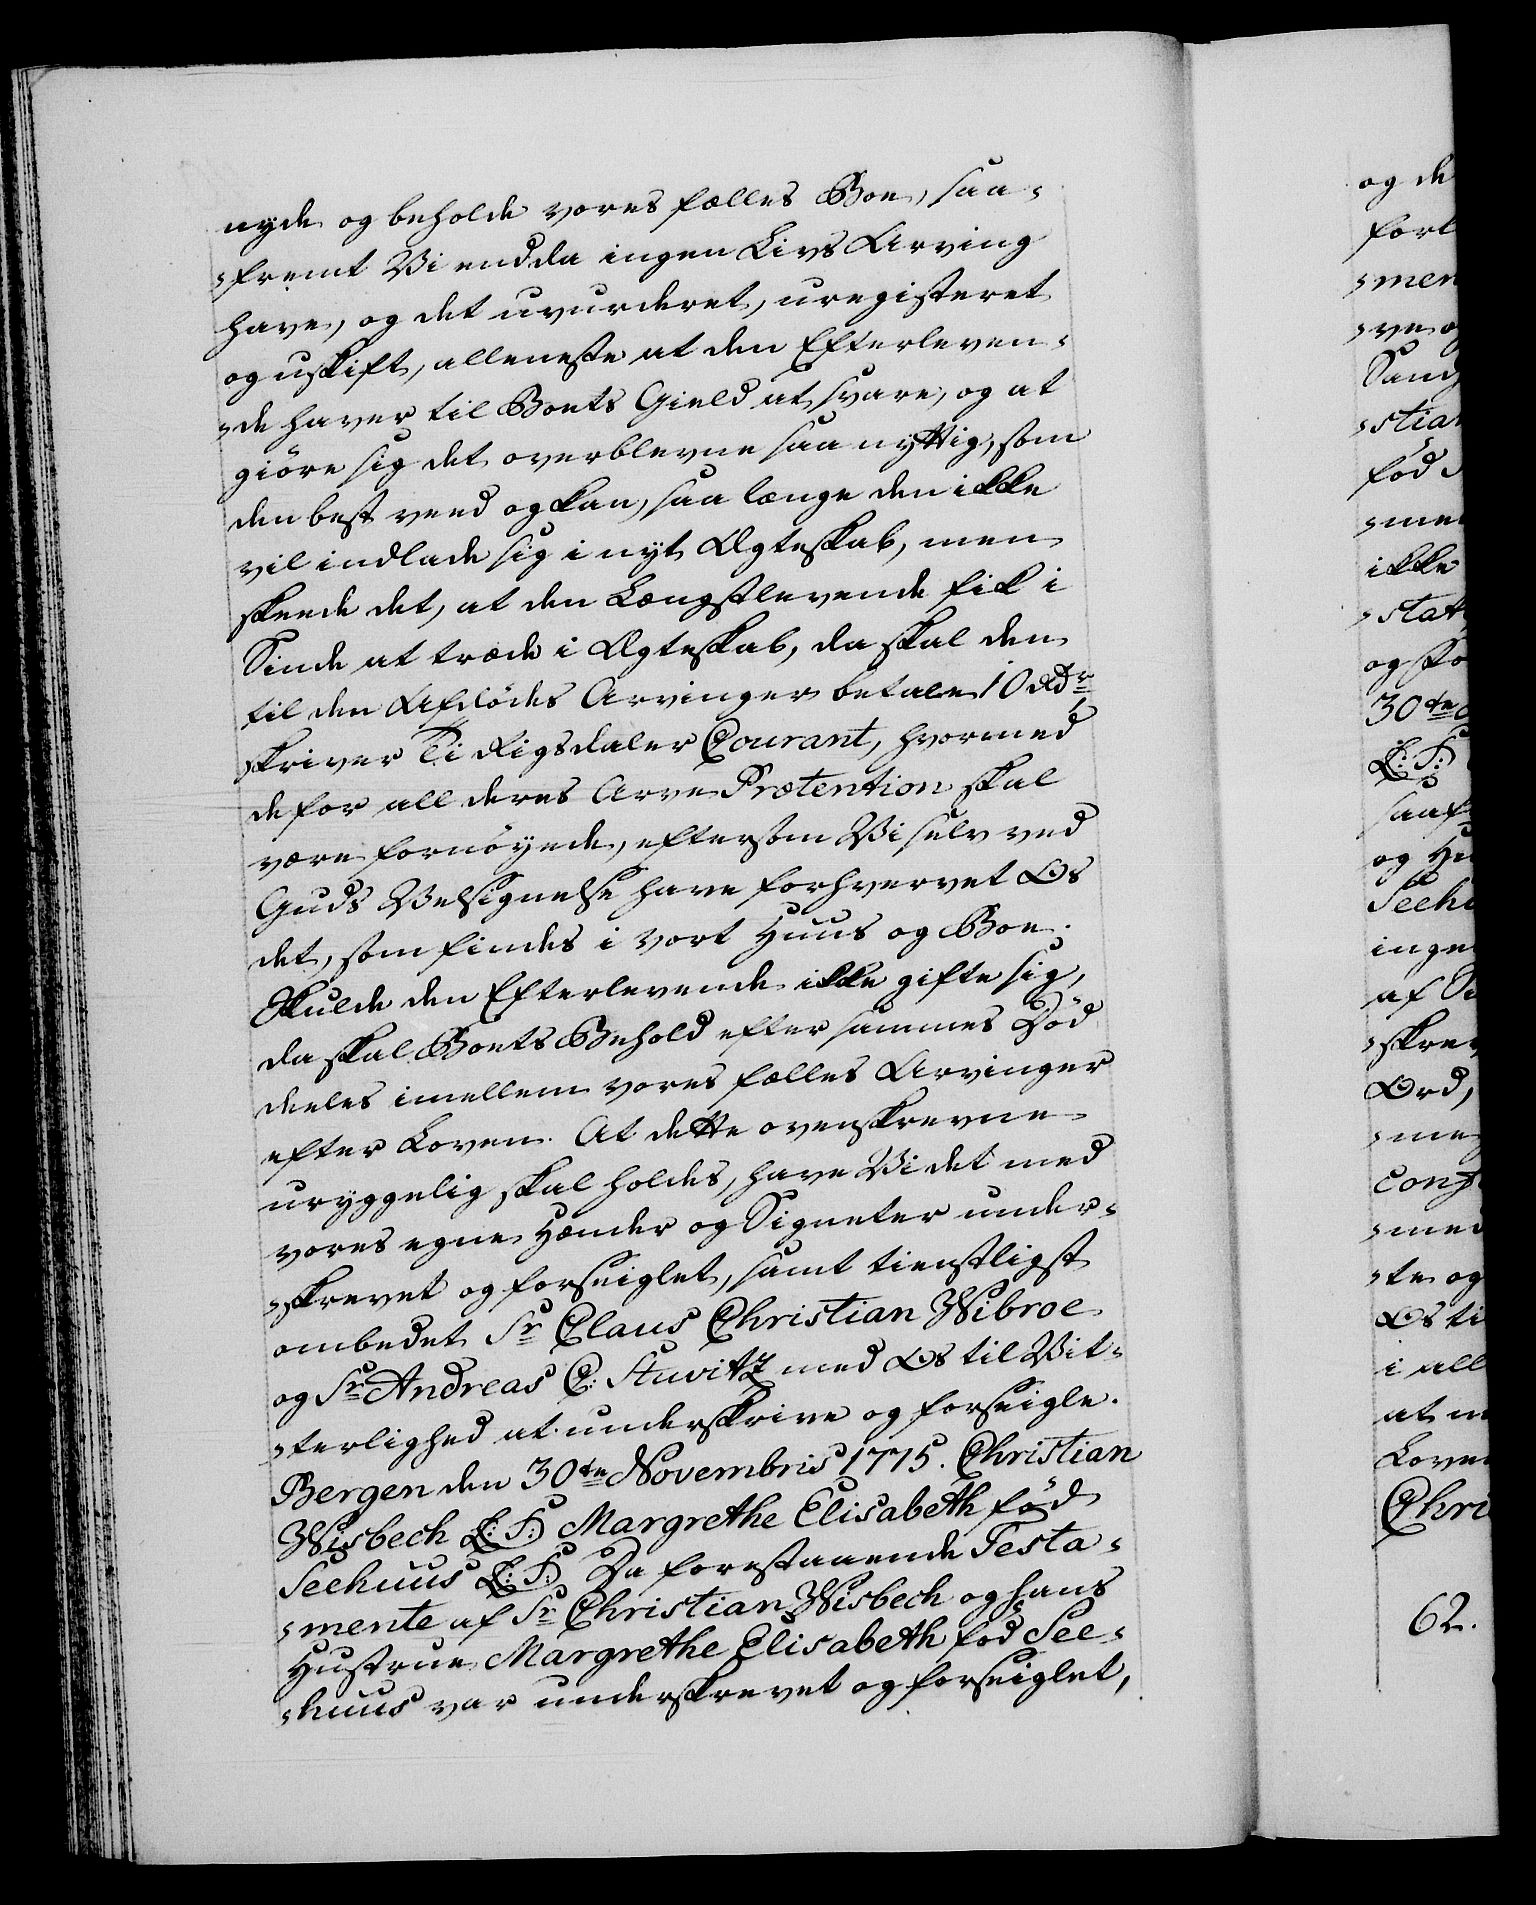 nyde og beholde vores fælles Boe, saa-
-fremt Vi endda ingen Livs Arving
have, og det uvurderet, uregisteret
og uskift, alleneste at den Efterleven-
-de haver til Boets Gield at svare, og at
giöre sig det overblevne saa nyttig, som
den best veed og kan, saa længe den ikke
vil indlade sig i nyt Ægteskab, men
skeede det, at den Længstlevende fik i
Sinde at træde i Ægteskab, da skal den
til den Afdödes Arvinger betale 10 Rdr
skriver Ti Rigsdaler Courant, hvormed
de for all deres Arve Prætention skal
være fornöyede, eftersom Vi selv ved
Guds Velsignelse have forhvervet Os
det, som findes i vort Huus og Boe.
Skulde den Efterlevende ikke gifte sig,
da skal Boets Behold efter sammes Död
deeles imellem vores fælles Arvinger
efter Loven. At dette ovenskrevne
uryggelig skal holdes, have Vi det med
vores egne Hænder og Signeter under-
-skrevet og forseiglet, samt tienstligst
ombedet Sr Claus Christian Wibroe
og Sr Andreas C: Stuvitz med Os til Vit-
-terlighed at underskrive og forseigle.
Bergen den 30te Novembris 1775. Christian
Wisbech (L: S:) Margrethe Elisabeth föd
Seehuus (L: S:) Da forestaaende Testa-
-mente af Sr Christian Wisbech og hans
Hustrue Margrethe Elisabeth föd See-
-huus var underskrevet og forseiglet,
og de
-men
Sand
-stian
föd
ikke
30te
L: S:
og Hu
Seehu
inge
af
-skrev
Ord,
-med
-te og
Os ti
i all
at
Loven
Chri
62.